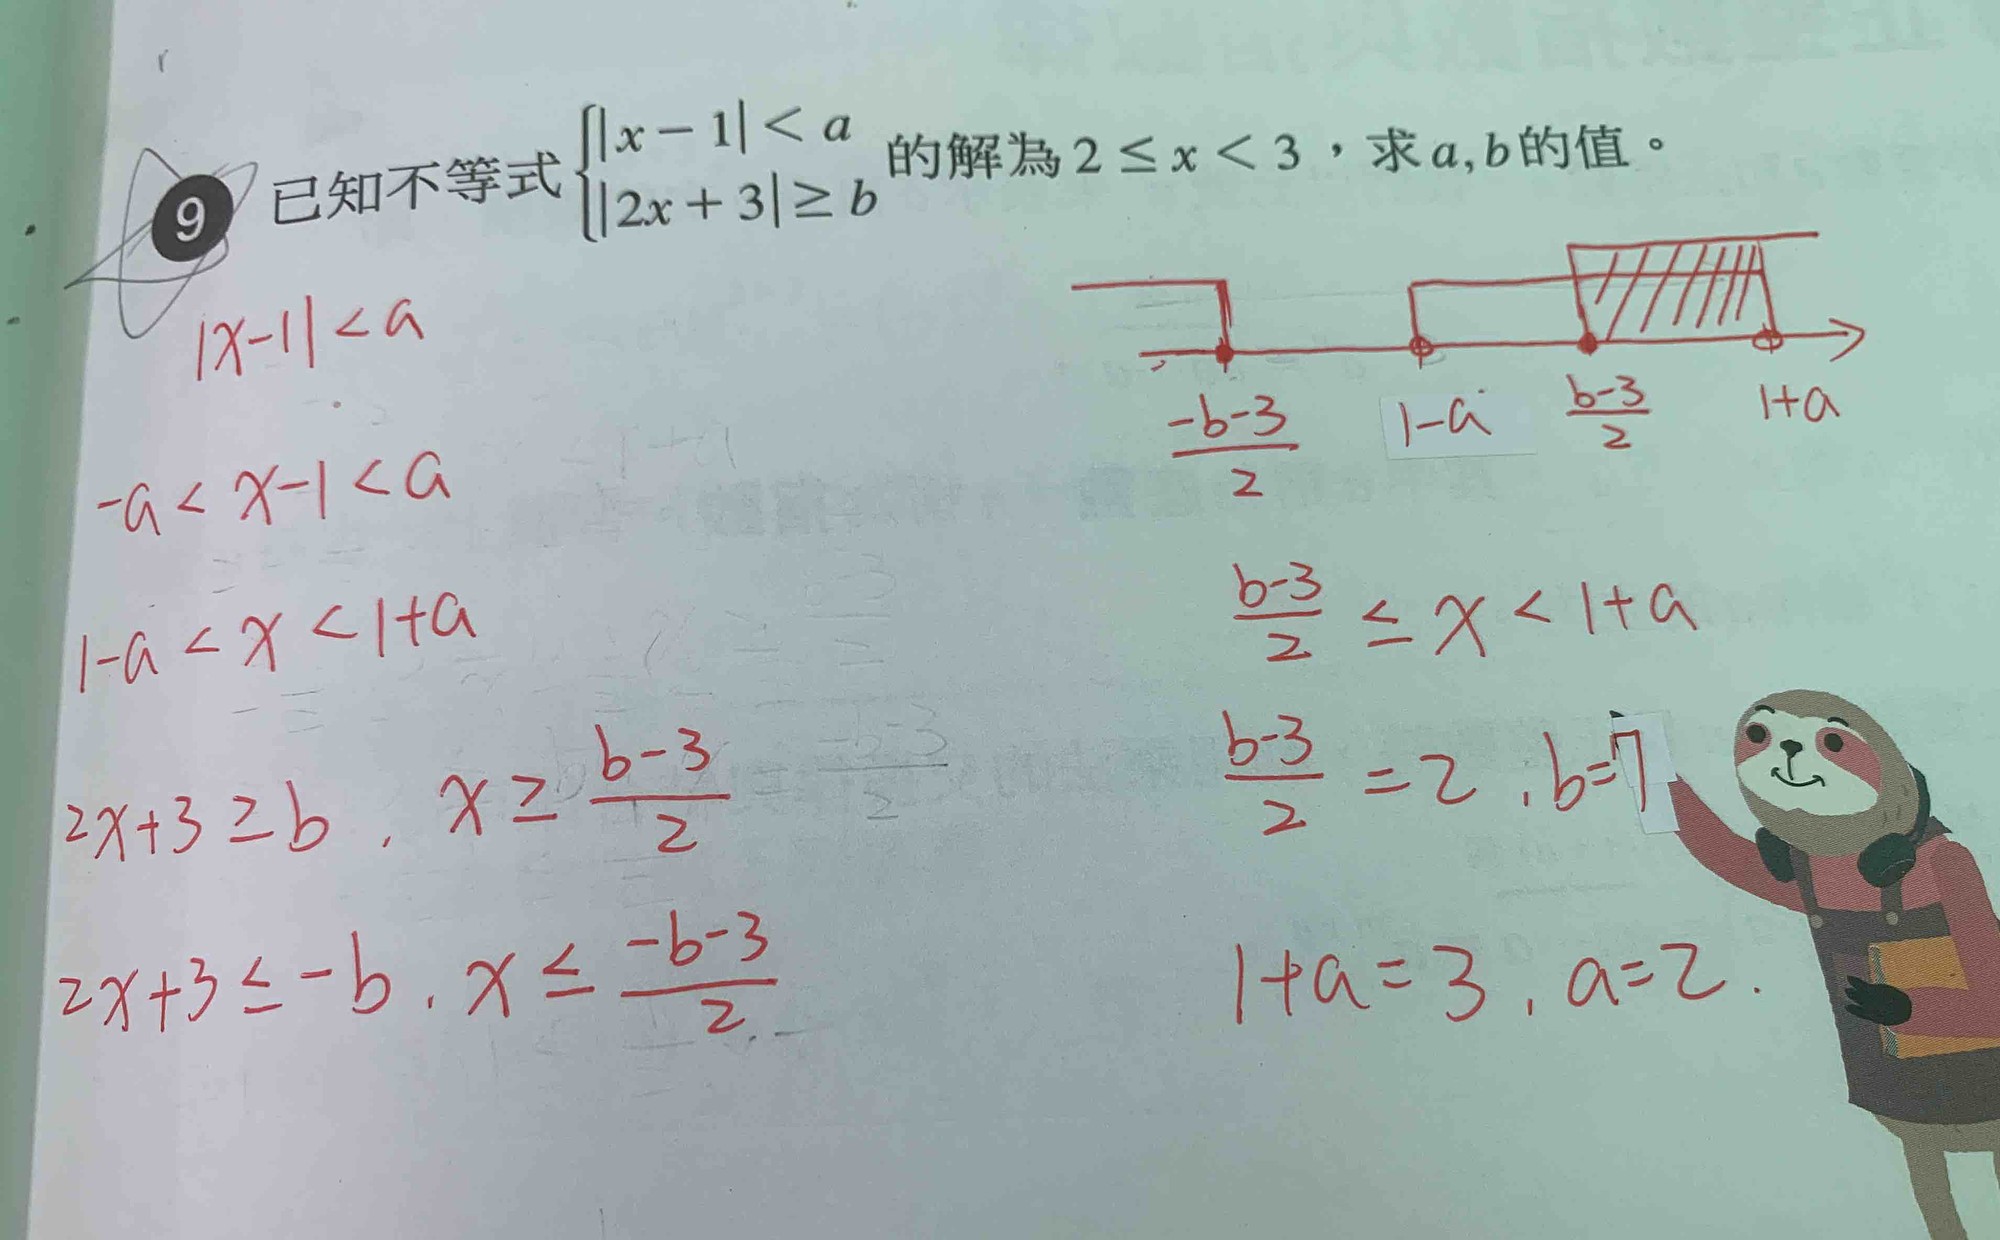 9 已知不等式 { |x − 1| < a 的解為 2 ≤ x < 3，求 a, b 的值。
|2x + 3| ≥ b
|x-1| < a
-a < x-1 < a
1-a < x < 1+a
2x+3 ≥ b , x ≥ (b-3)/2
2x+3 ≤ -b , x ≤ (-b-3)/2
(-b-3)/2 1-a (b-3)/2 1+a
(b-3)/2 ≤ x < 1+a
(b-3)/2 = 2 , b=7
1+a=3 , a=2.